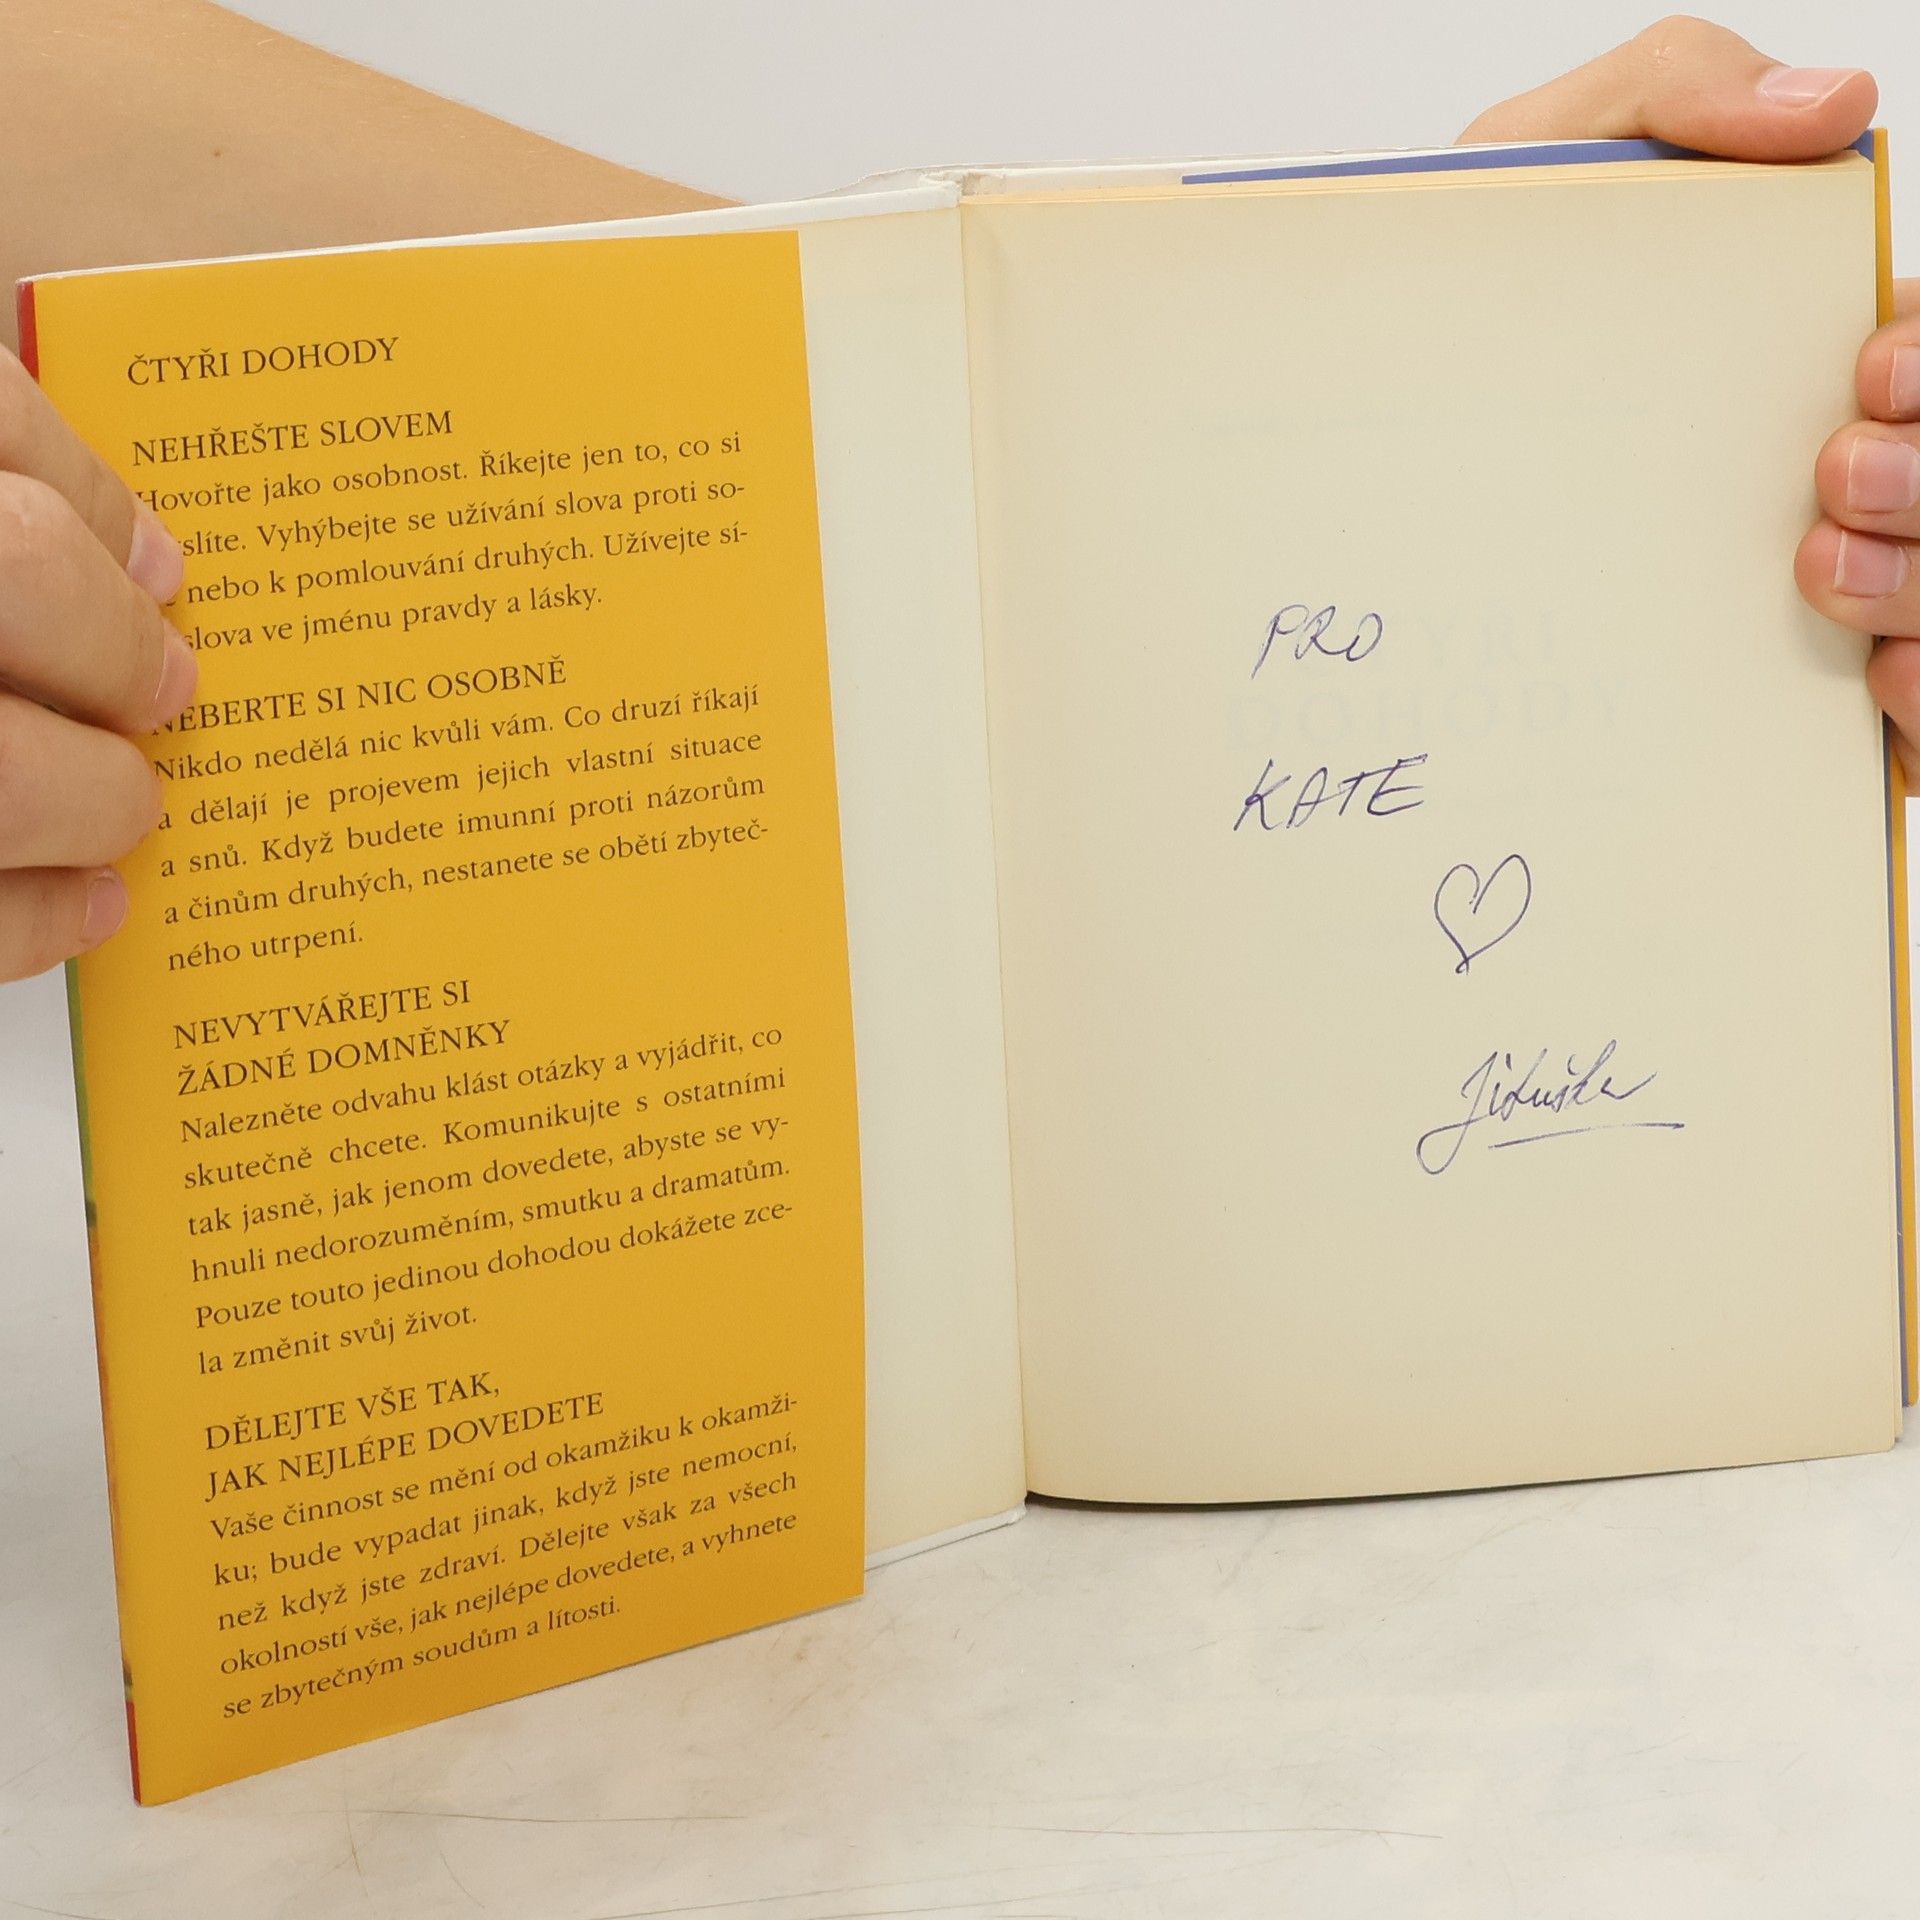 ČTYŘI DOHODY
NEHŘEŠTE SLOVEM
Hovořte jako osobnost. Říkejte jen to, co si
slíte. Vyhýbejte se užívání slova proti so-
nebo k pomlouvání druhých. Užívejte sí-
slova ve jménu pravdy a lásky.
NEBERTE SI NIC OSOBNĚ
Nikdo nedělá nic kvůli vám. Co druzí říkají
a dělají je projevem jejich vlastní situace
a snů. Když budete imunní proti názorům
a činům druhých, nestanete se obětí zbyteč-
ného utrpení.
NEVYTVÁŘEJTE SI
ŽÁDNÉ DOMNĚNKY
Nalezněte odvahu klást otázky a vyjádřit, co
skutečně chcete. Komunikujte s ostatními
tak jasně, jak jenom dovedete, abyste se vy-
hnuli nedorozuměním, smutku a dramatům.
Pouze touto jedinou dohodou dokážete zce-
la změnit svůj život.
DĚLEJTE VŠE TAK,
JAK NEJLÉPE DOVEDETE
Vaše činnost se mění od okamžiku k okamži-
ku; bude vypadat jinak, když jste nemocní,
než když jste zdraví. Dělejte však za všech
okolností vše, jak nejlépe dovedete, a vyhnete
se zbytečným soudům a lítosti.
PRO
KATE
Jituška